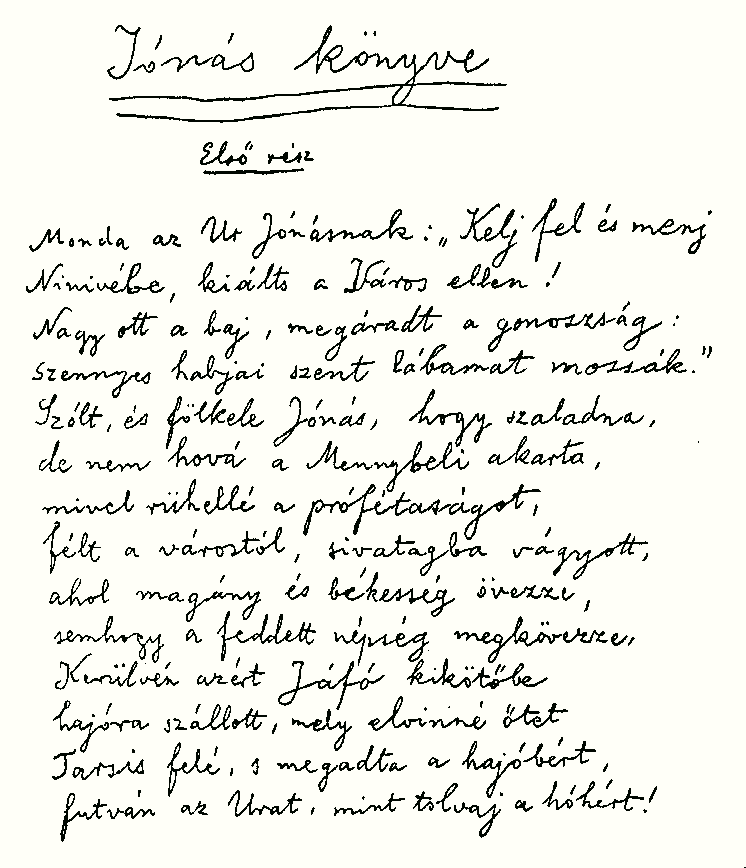 Jónás könyve
Első rész
Monda az Ur Jónásnak: „Kelj fel és menj
Ninivébe, kiálts a Város ellen!
Nagy ott a baj, megáradt a gonoszság:
szennyes habjai szent lábamat mossák."
Szólt, és fölkele Jónás, hogy szaladna,
de nem hová a Mennybeli akarta,
mivel rühellé a prófétaságot,
félt a várostól, sivatagba vágyott,
ahol magány és békesség övezze,
semhogy a feddett népség megkövezze.
Kerülvén azért Jáfó kikötőbe
hajóra szállott, mely elvinné őtet
Tarsis felé, s megadta a hajóbért,
futván az Urat, mint tolvaj a hóhért!